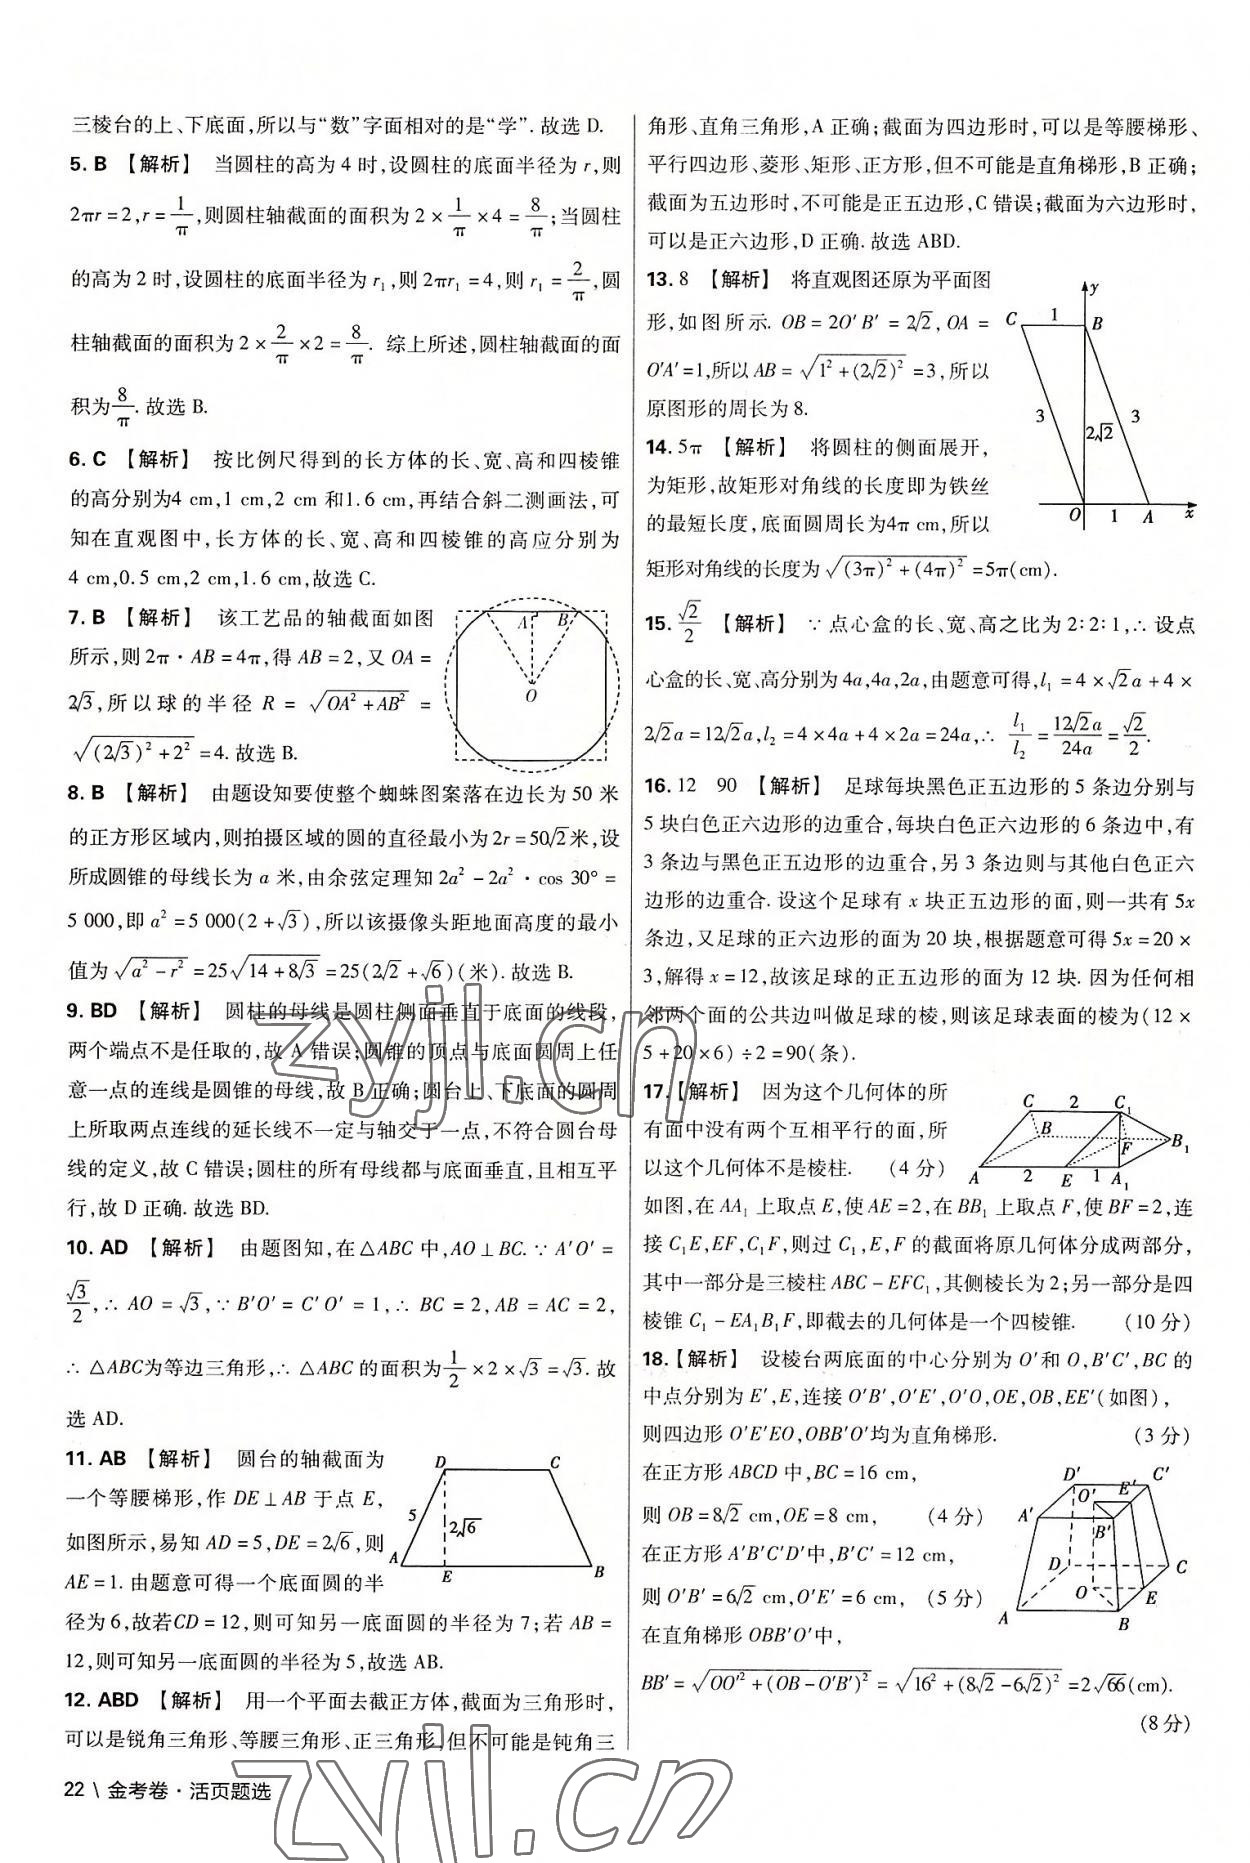 三棱台的上、下底面,所以与“数”字面相对的是“学”. 故选 D.
5. B 【解析】 当圆柱的高为 4 时,设圆柱的底面半径为 r,则
2πr=2,r=1/π,则圆柱轴截面的面积为 2×1/π×4=8/π;当圆柱
的高为 2 时,设圆柱的底面半径为 r₁,则 2πr₁=4,则 r₁=2/π,圆
柱轴截面的面积为 2×2/π×2=8/π. 综上所述,圆柱轴截面的面
积为8/π. 故选 B.
6. C 【解析】 按比例尺得到的长方体的长、宽、高和四棱锥
的高分别为4 cm,1 cm,2 cm 和1.6 cm,再结合斜二测画法,可
知在直观图中,长方体的长、宽、高和四棱锥的高应分别为
4 cm,0.5 cm,2 cm,1.6 cm,故选 C.
7. B 【解析】 该工艺品的轴截面如图
所示,则 2π·AB=4π,得 AB=2,又 OA=
2√3,所以球的半径 R=√(OA²+AB²)=
√((2√3)²+2²)=4. 故选 B.
A B
O
8. B 【解析】 由题设知要使整个蜘蛛图案落在边长为 50 米
的正方形区域内,则拍摄区域的圆的直径最小为 2r=50√2米,设
所成圆锥的母线长为 a 米,由余弦定理知 2a²-2a²·cos 30°=
5 000,即 a²=5 000(2+√3),所以该摄像头距地面高度的最小
值为√(a²-r²)=25√(14+8√3)=25(2√2+√6)(米). 故选 B.
9. BD 【解析】 圆柱的母线是圆柱侧面垂直于底面的线段,
两个端点不是任取的,故 A 错误;圆锥的顶点与底面圆周上任
意一点的连线是圆锥的母线,故 B 正确;圆台上、下底面的圆周
上所取两点连线的延长线不一定与轴交于一点,不符合圆台母
线的定义,故 C 错误;圆柱的所有母线都与底面垂直,且相互平
行,故 D 正确. 故选 BD.
10. AD 【解析】 由题图知,在△ABC 中,AO⊥BC. ∵A′O′=
√3/2,∴AO=√3,∵B′O′=C′O′=1,∴BC=2,AB=AC=2,
∴△ABC为等边三角形,∴△ABC 的面积为1/2×2×√3=√3. 故
选 AD.
11. AB 【解析】 圆台的轴截面为
一个等腰梯形,作 DE⊥AB 于点 E,
如图所示,易知 AD=5,DE=2√6,则
AE=1. 由题意可得一个底面圆的半
D C
5 2√6
A E B
径为 6,故若CD=12,则可知另一底面圆的半径为 7;若 AB=
12,则可知另一底面圆的半径为 5,故选 AB.
12. ABD 【解析】 用一个平面去截正方体,截面为三角形时,
可以是锐角三角形、等腰三角形、正三角形,但不可能是钝角三
角形、直角三角形,A 正确;截面为四边形时,可以是等腰梯形、
平行四边形、菱形、矩形、正方形,但不可能是直角梯形,B 正确;
截面为五边形时,不可能是正五边形,C 错误;截面为六边形时,
可以是正六边形,D 正确. 故选 ABD.
13. 8 【解析】 将直观图还原为平面图
形,如图所示. OB=2O′B′=2√2,OA=
O′A′=1,所以 AB=√(1²+(2√2)²)=3,所以
原图形的周长为 8.
y
C 1 B
3 2√2 3
O 1 A x
14. 5π 【解析】 将圆柱的侧面展开,
为矩形,故矩形对角线的长度即为铁丝
的最短长度,底面圆周长为4π cm,所以
矩形对角线的长度为√((3π)²+(4π)²)=5π(cm).
15. √2/2 【解析】 ∵点心盒的长、宽、高之比为 2∶2∶1,∴设点
心盒的长、宽、高分别为 4a,4a,2a,由题意可得,l₁=4×√2a+4×
2√2a=12√2a,l₂=4×4a+4×2a=24a,∴l₁/l₂=12√2a/24a=√2/2.
16. 12 90 【解析】 足球每块黑色正五边形的 5 条边分别与
5 块白色正六边形的边重合,每块白色正六边形的 6 条边中,有
3 条边与黑色正五边形的边重合,另 3 条边则与其他白色正六
边形的边重合. 设这个足球有 x 块正五边形的面,则一共有 5x
条边,又足球的正六边形的面为 20 块,根据题意可得 5x=20×
3,解得 x=12,故该足球的正五边形的面为 12 块. 因为任何相
邻两个面的公共边叫做足球的棱,则该足球表面的棱为(12×
5+20×6)÷2=90(条).
17.【解析】 因为这个几何体的所
有面中没有两个互相平行的面,所
以这个几何体不是棱柱. (4 分)
C 2 C₁
B F B₁
A 2 E 1 A₁
如图,在 AA₁ 上取点 E,使 AE=2,在 BB₁ 上取点 F,使 BF=2,连
接 C₁E,EF,C₁F,则过 C₁,E,F 的截面将原几何体分成两部分,
其中一部分是三棱柱 ABC-EFC₁,其侧棱长为 2;另一部分是四
棱锥 C₁-EA₁B₁F,即截去的几何体是一个四棱锥. (10 分)
18.【解析】 设棱台两底面的中心分别为 O′和 O,B′C′,BC 的
中点分别为 E′,E,连接 O′B′,O′E′,O′O,OE,OB,EE′(如图),
则四边形 O′E′EO,OBB′O′均为直角梯形. (3 分)
在正方形 ABCD 中,BC=16 cm,
则 OB=8√2 cm,OE=8 cm, (4 分)
在正方形 A′B′C′D′中,B′C′=12 cm,
则 O′B′=6√2 cm,O′E′=6 cm, (5 分)
在直角梯形 OBB′O′中,
D′ C′
O′ E′
A′ B′
D C
O E
A B
BB′=√(OO′²+(OB-O′B′)²)=√(16²+(8√2-6√2)²)=2√66(cm).
(8 分)
22\金考卷·活页题选
zyjl.cn
zyjl.cn